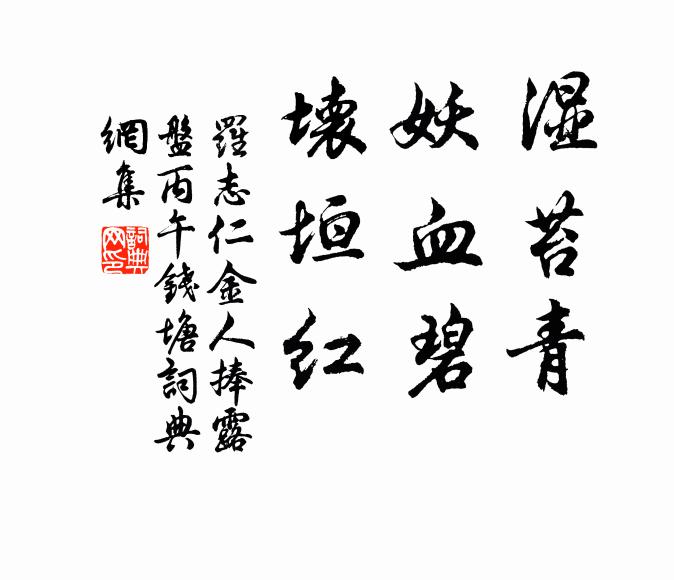 湿苔青
妖血碧
壊垣红
羅志仁金人捧露
盤丙午錢塘詞典
網集
詞典网印